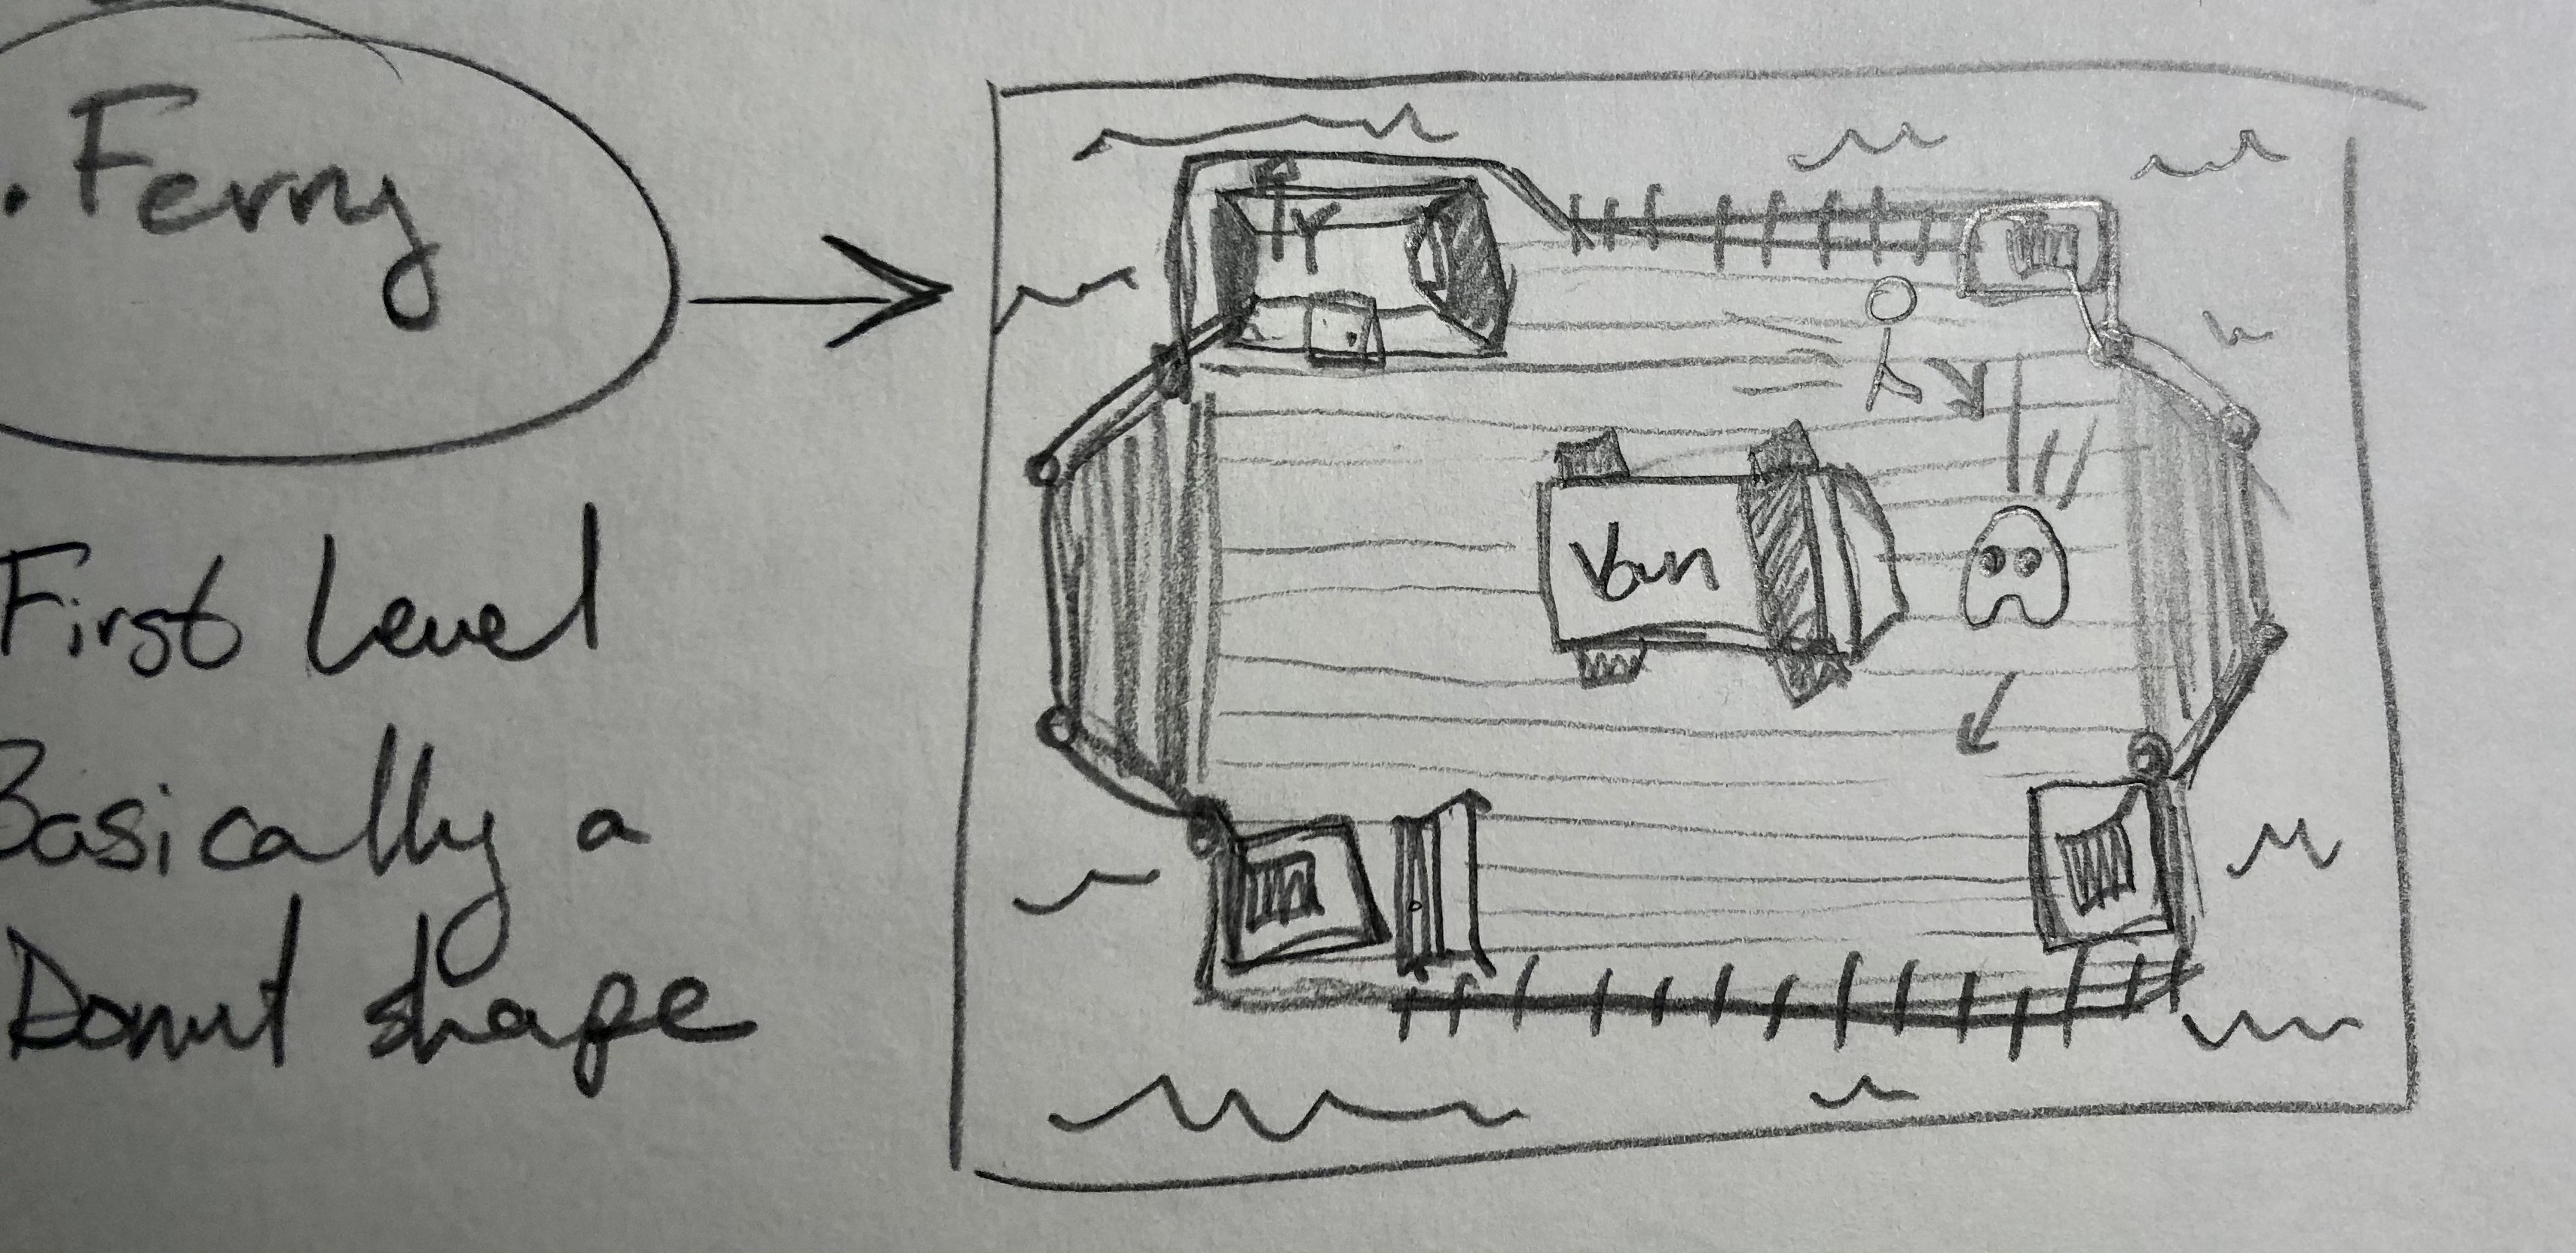 . Ferry
First Level
Basically a
Donut shape
Van